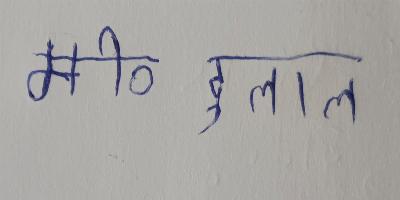 मी० दुलाल